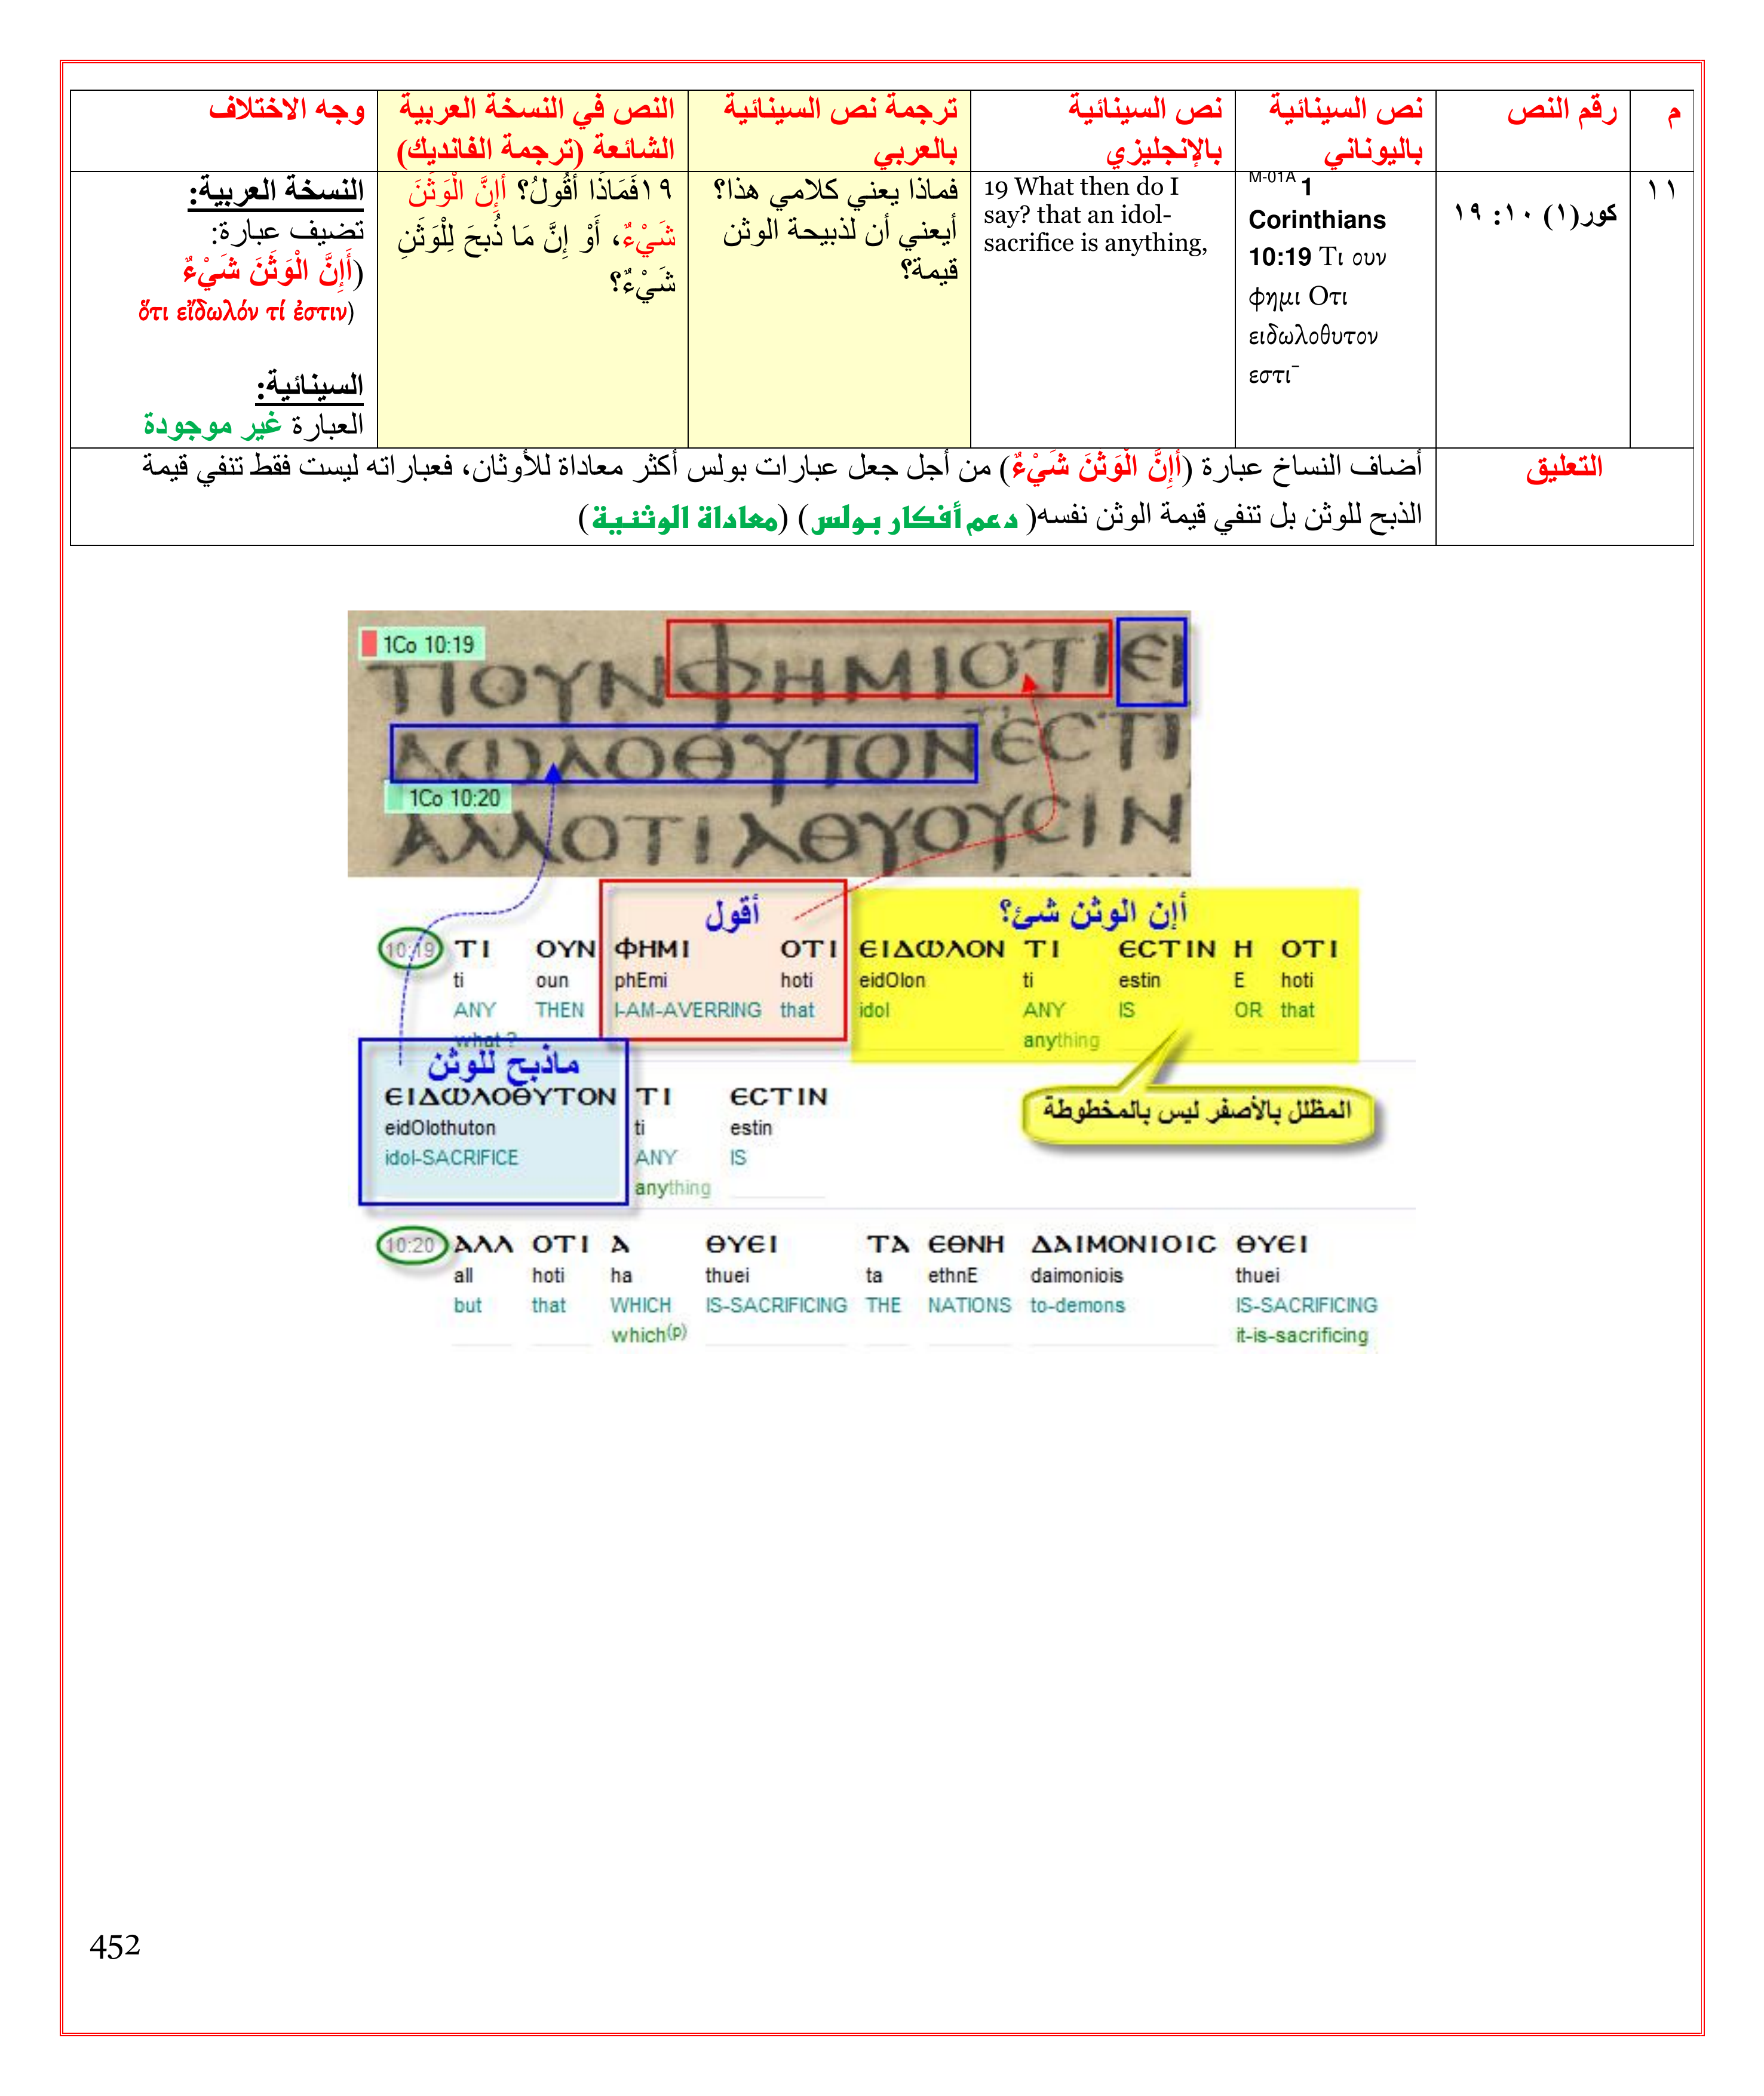 م
رقم النص
نص السينائية
باليوناني
نص السينائية
بالإنجليزي
ترجمة نص السينائية
بالعربي
النص في النسخة العربية
الشائعة (ترجمة الفانديك)
وجه الاختلاف
١١
كور(١) ١٠: ١٩
M-01A 1
Corinthians
10:19 Τι ουν
φημι Οτι
ειδωλοθυτον
εστι¯
19 What then do I
say? that an idol-
sacrifice is anything,
فماذا يعني كلامي هذا؟
أيعني أن لذبيحة الوثن
قيمة؟
١٩فَمَاذَا أَقُولُ؟ أَإِنَّ الْوَثَنَ
شَيْءٌ، أَوْ إِنَّ مَا ذُبِحَ لِلْوَثَنِ
شَيْءٌ؟
النسخة العربية:
تضيف عبارة:
(أَإِنَّ الْوَثَنَ شَيْءٌ
ὅτι εἴδωλόν τί ἐστιν)
السينائية:
العبارة غير موجودة
التعليق
أضاف النساخ عبارة (أَإِنَّ الْوَثَنَ شَيْءٌ) من أجل جعل عبارات بولس أكثر معاداة للأوثان، فعباراته ليست فقط تنفي قيمة
الذبح للوثن بل تنفي قيمة الوثن نفسه( دعم أفكار بولس) (معاداة الوثنية )
1Co 10:19
ΤΙΟΥΝΦΗΜΙΟΤΙΕΙ
ΔΩΛΟΘΥΤΟΝΕCΤΙ
1Co 10:20
ΑΛΛΟΤΙΑΘΥΟΥCΙΝ
أقول
أإن الوثن شئ؟
10:19 ΤΙ ΟΥΝ ΦΗΜΙ ΟΤΙ ΕΙΔΩΛΟΝ ΤΙ ΕCΤΙΝ Η ΟΤΙ
ti oun phEmi hoti eidOlon ti estin E hoti
ANY THEN I-AM-AVERRING that idol ANY IS OR that
what ? anything
ماذبح للوثن
المظلل بالأصفر ليس بالمخطوطة
ΕΙΔΩΛΟΘΥΤΟΝ ΤΙ ΕCΤΙΝ
eidOlothuton ti estin
idol-SACRIFICE ANY IS
anything
10:20 ΑΛΛ ΟΤΙ Α ΘΥΕΙ ΤΑ ΕΘΝΗ ΔΑΙΜΟΝΙΟΙC ΘΥΕΙ
all hoti ha thuei ta ethnE daimoniois thuei
but that WHICH IS-SACRIFICING THE NATIONS to-demons IS-SACRIFICING
which(p) it-is-sacrificing
452